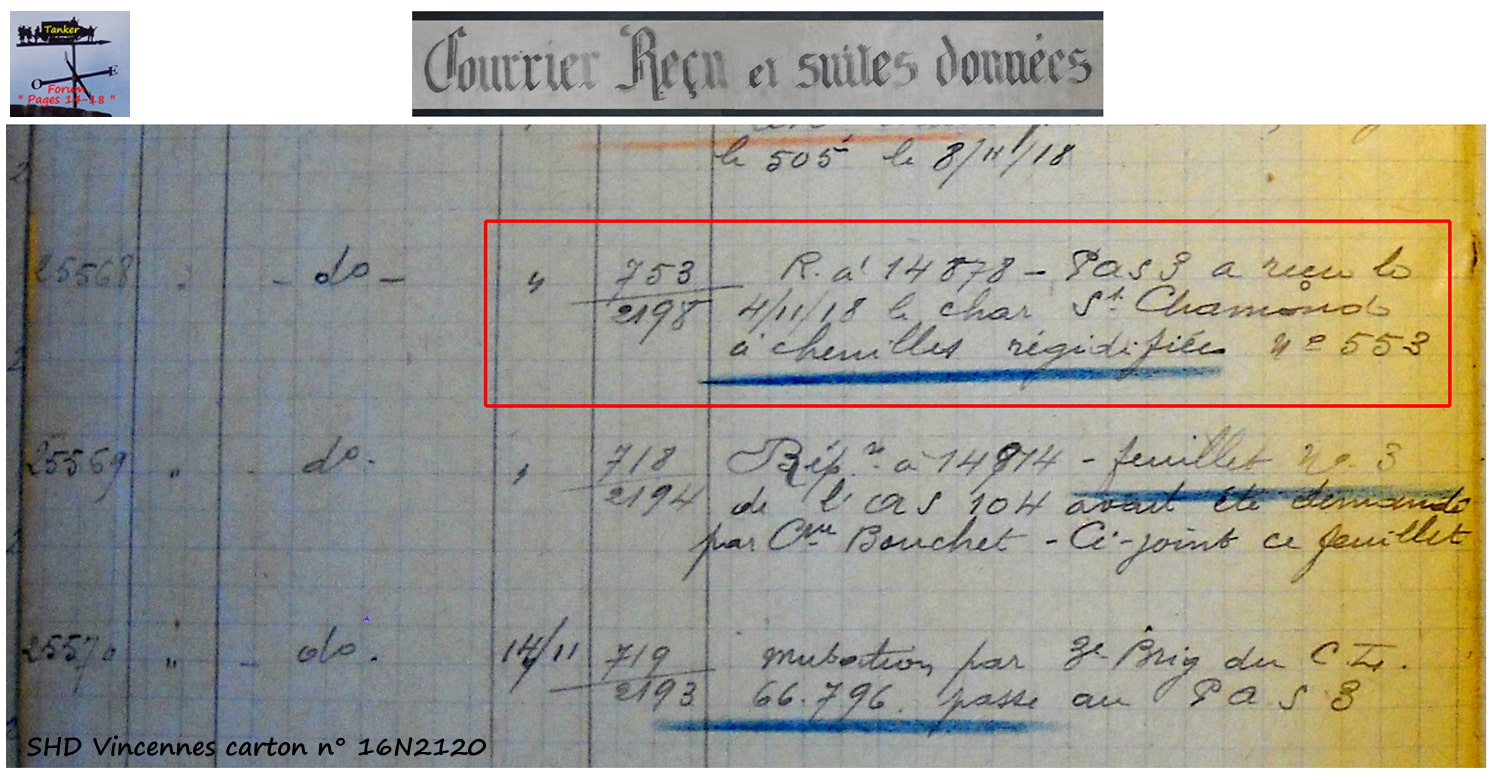 Tanker
O E
Forum
" Pages 14-18 "
Courrier Reçu et suites données
le 505e le 8/11/18
25568 " - do - " 753 R. à 14878 - PAS3 a reçu le
2198 4/11/18 le char St. Chamond
à chenilles régidifiées No 553
25569 " - do. " 718 Rép.se à 14914 - feuillet No. 3
2194 de l'AS 104 avait été demandé
par Cne Bouchet - Ci-joint ce feuillet
25570 " - do. 14/11 719 mutation par 3e Brig du C I.
2193 66.796. passe au PAS 3
SHD Vincennes carton n° 16N2120